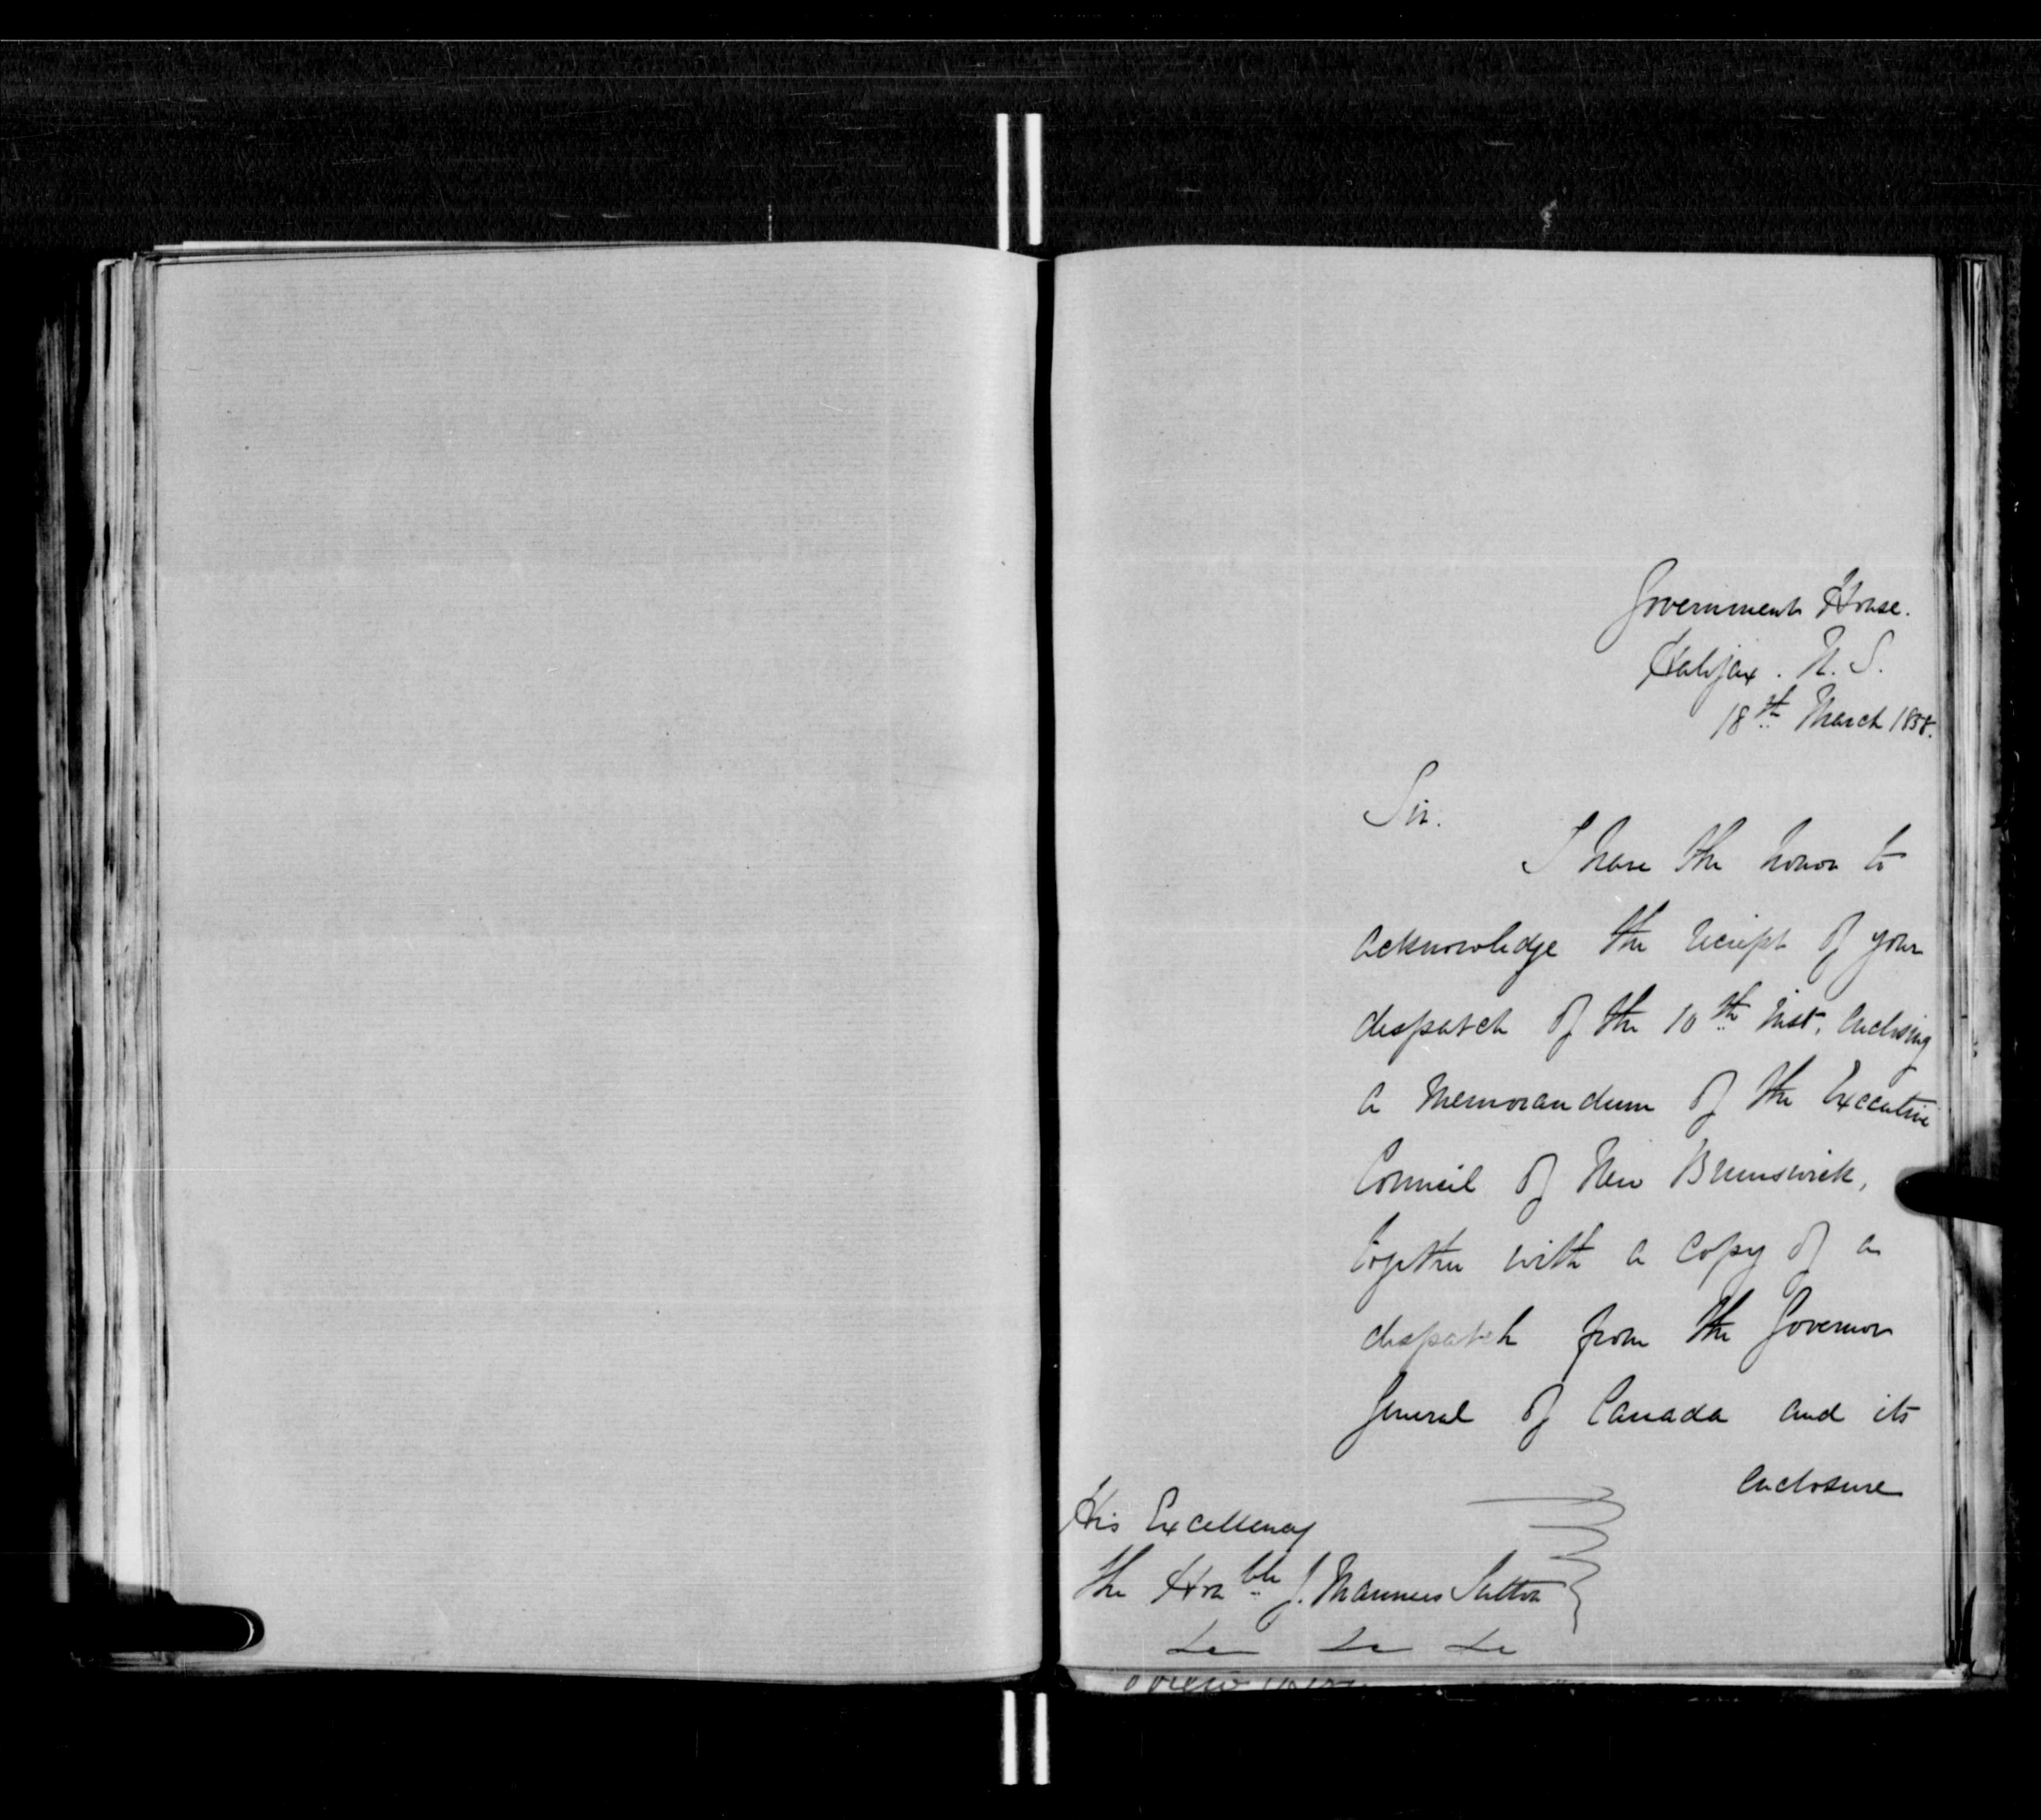 Government House.
Halifax. N. S.
18th March 1858.
Sir.
I have the honor to
acknowledge the reciept of your
despatch of the 10th Inst, enclosing
a Memorandum of the Executive
Council of New Brunswick,
together with a Copy of a
despatch from the Governor
General of Canada and its
enclosure
His Excellency
the Honble J. Manners Sutton
&c &c &c